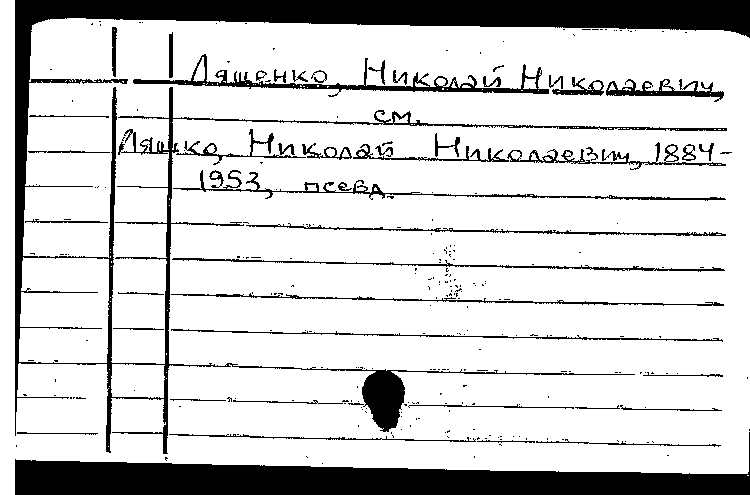 Лященко, Николай Николаевич,
см.
Ляшко, Николай Николаевич, 1884-
1953, псевд.